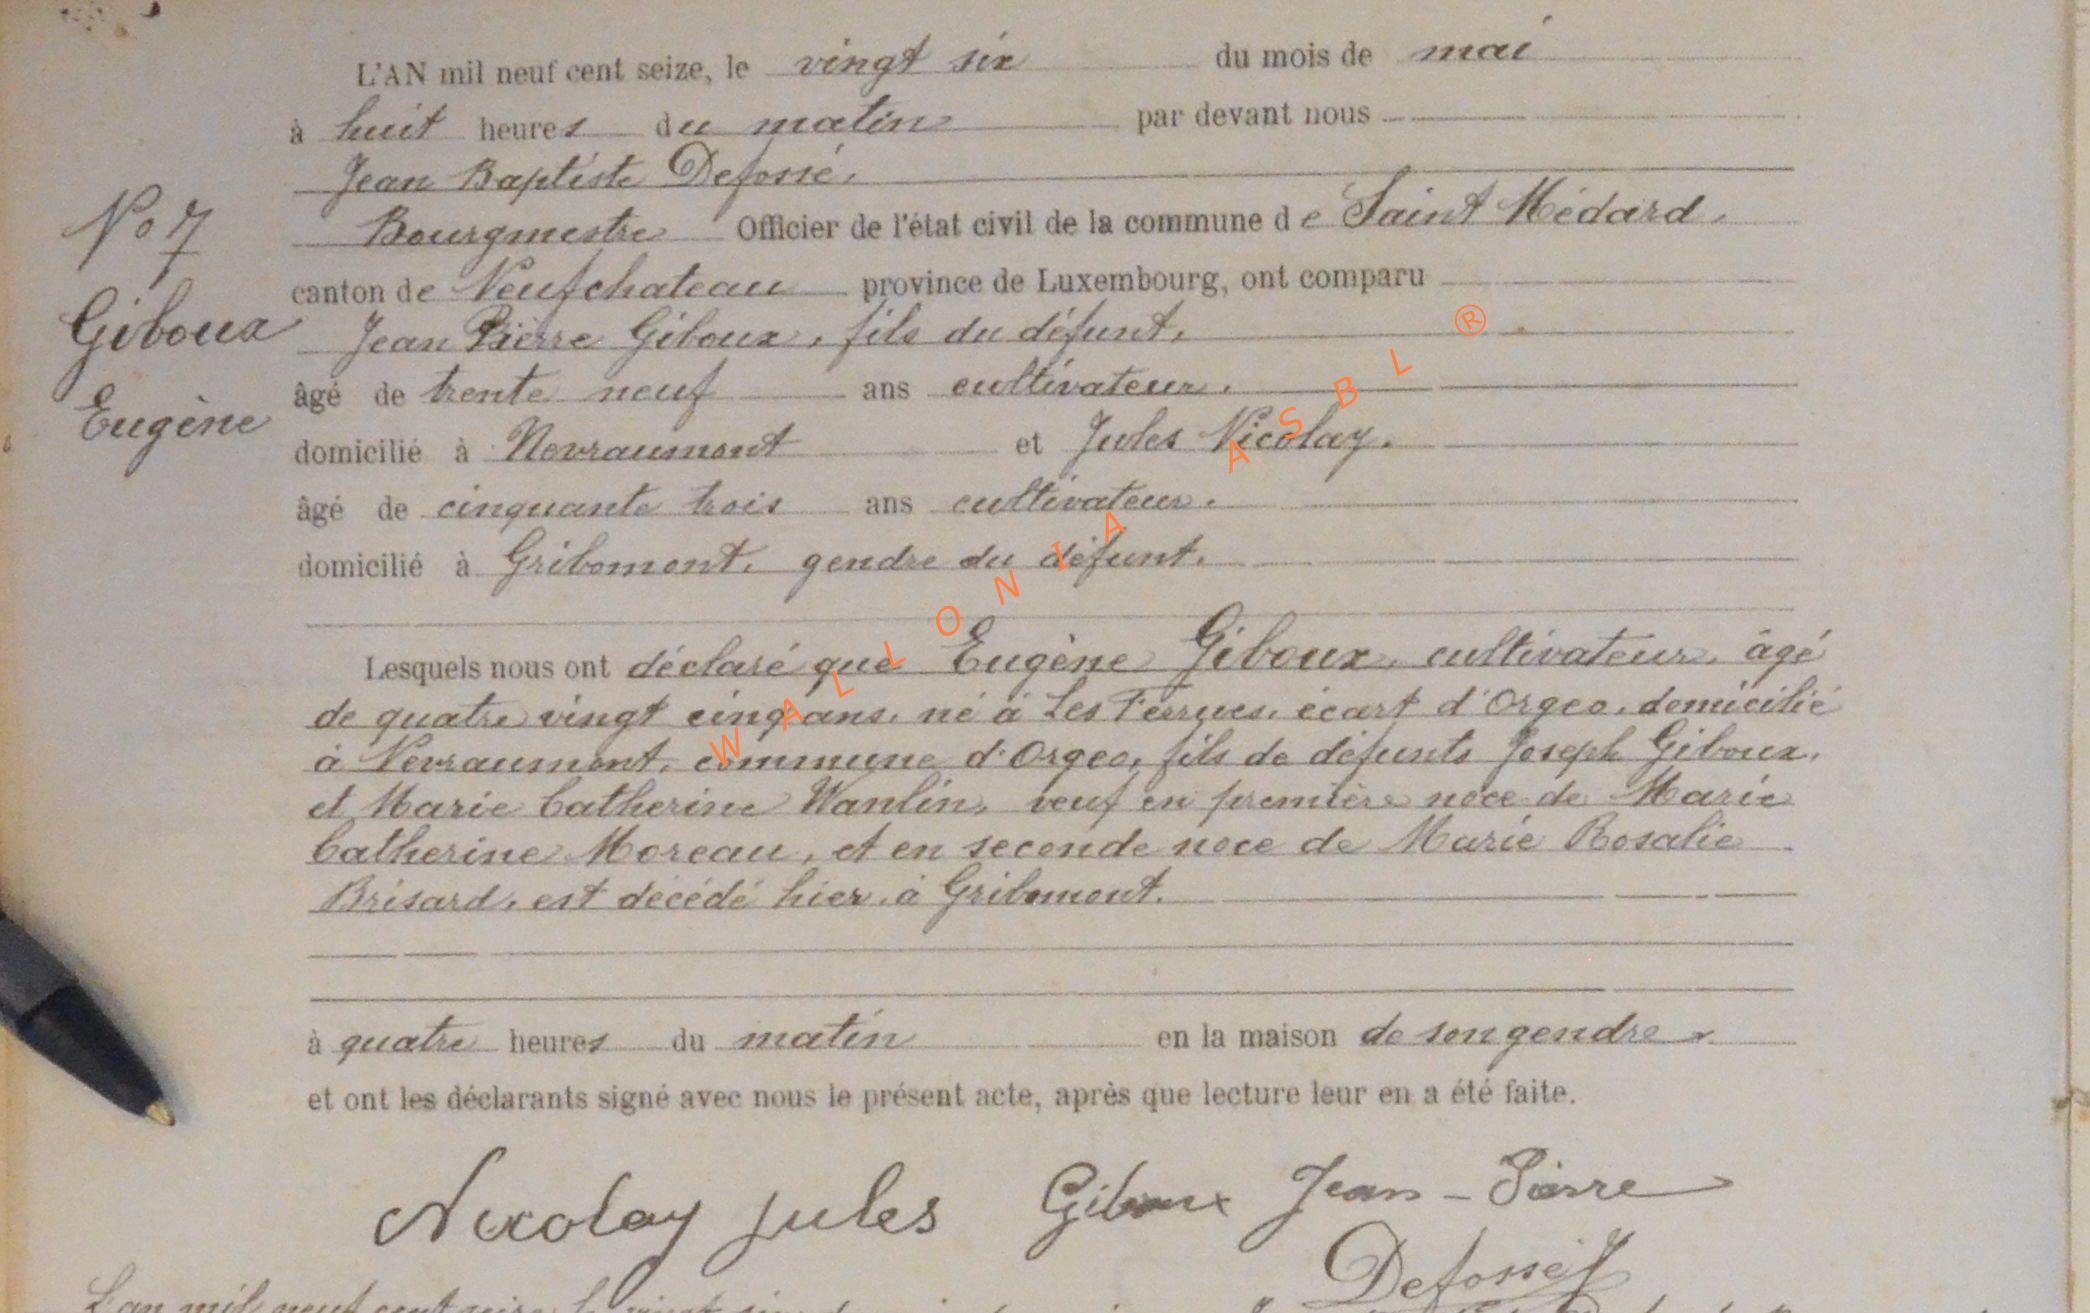 L'AN mil neuf cent seize, le vingt six du mois de mai
à huit heures du matin par devant nous
Jean Baptiste Defossé.
No 7
Bourgmestre Officier de l'état civil de la commune de Saint Médard.
canton de Neufchateau province de Luxembourg, ont comparu
Giboux
Jean Pierre Giboux, fils du défunt,
âgé de trente neuf ans cultivateur.
Eugène
domicilié à Nevraumont et Jules Nicolay.
âgé de cinquante trois ans cultivateur.
domicilié à Gribomont, gendre du défunt.
Lesquels nous ont déclaré que Eugène Giboux, cultivateur, âgé
de quatre vingt cinq ans, né à Les Ferrues, écart d'Orgeo, domicilié
à Nevraumont, commune d'Orgeo, fils de défunts Joseph Giboux,
et Marie Catherine Wanlin, veuf en première noce de Marie
Catherine Moreau, et en seconde noce de Marie Rosalie
Brisard, est décédé hier, à Gribomont.
à quatre heures du matin en la maison de son gendre
et ont les déclarants signé avec nous le présent acte, après que lecture leur en a été faite.
Nicolay Jules Giboux Jean-Pierre
Defossé J
L'an mil neuf cent seize, le vingt six
WALLONIA ASBL ®